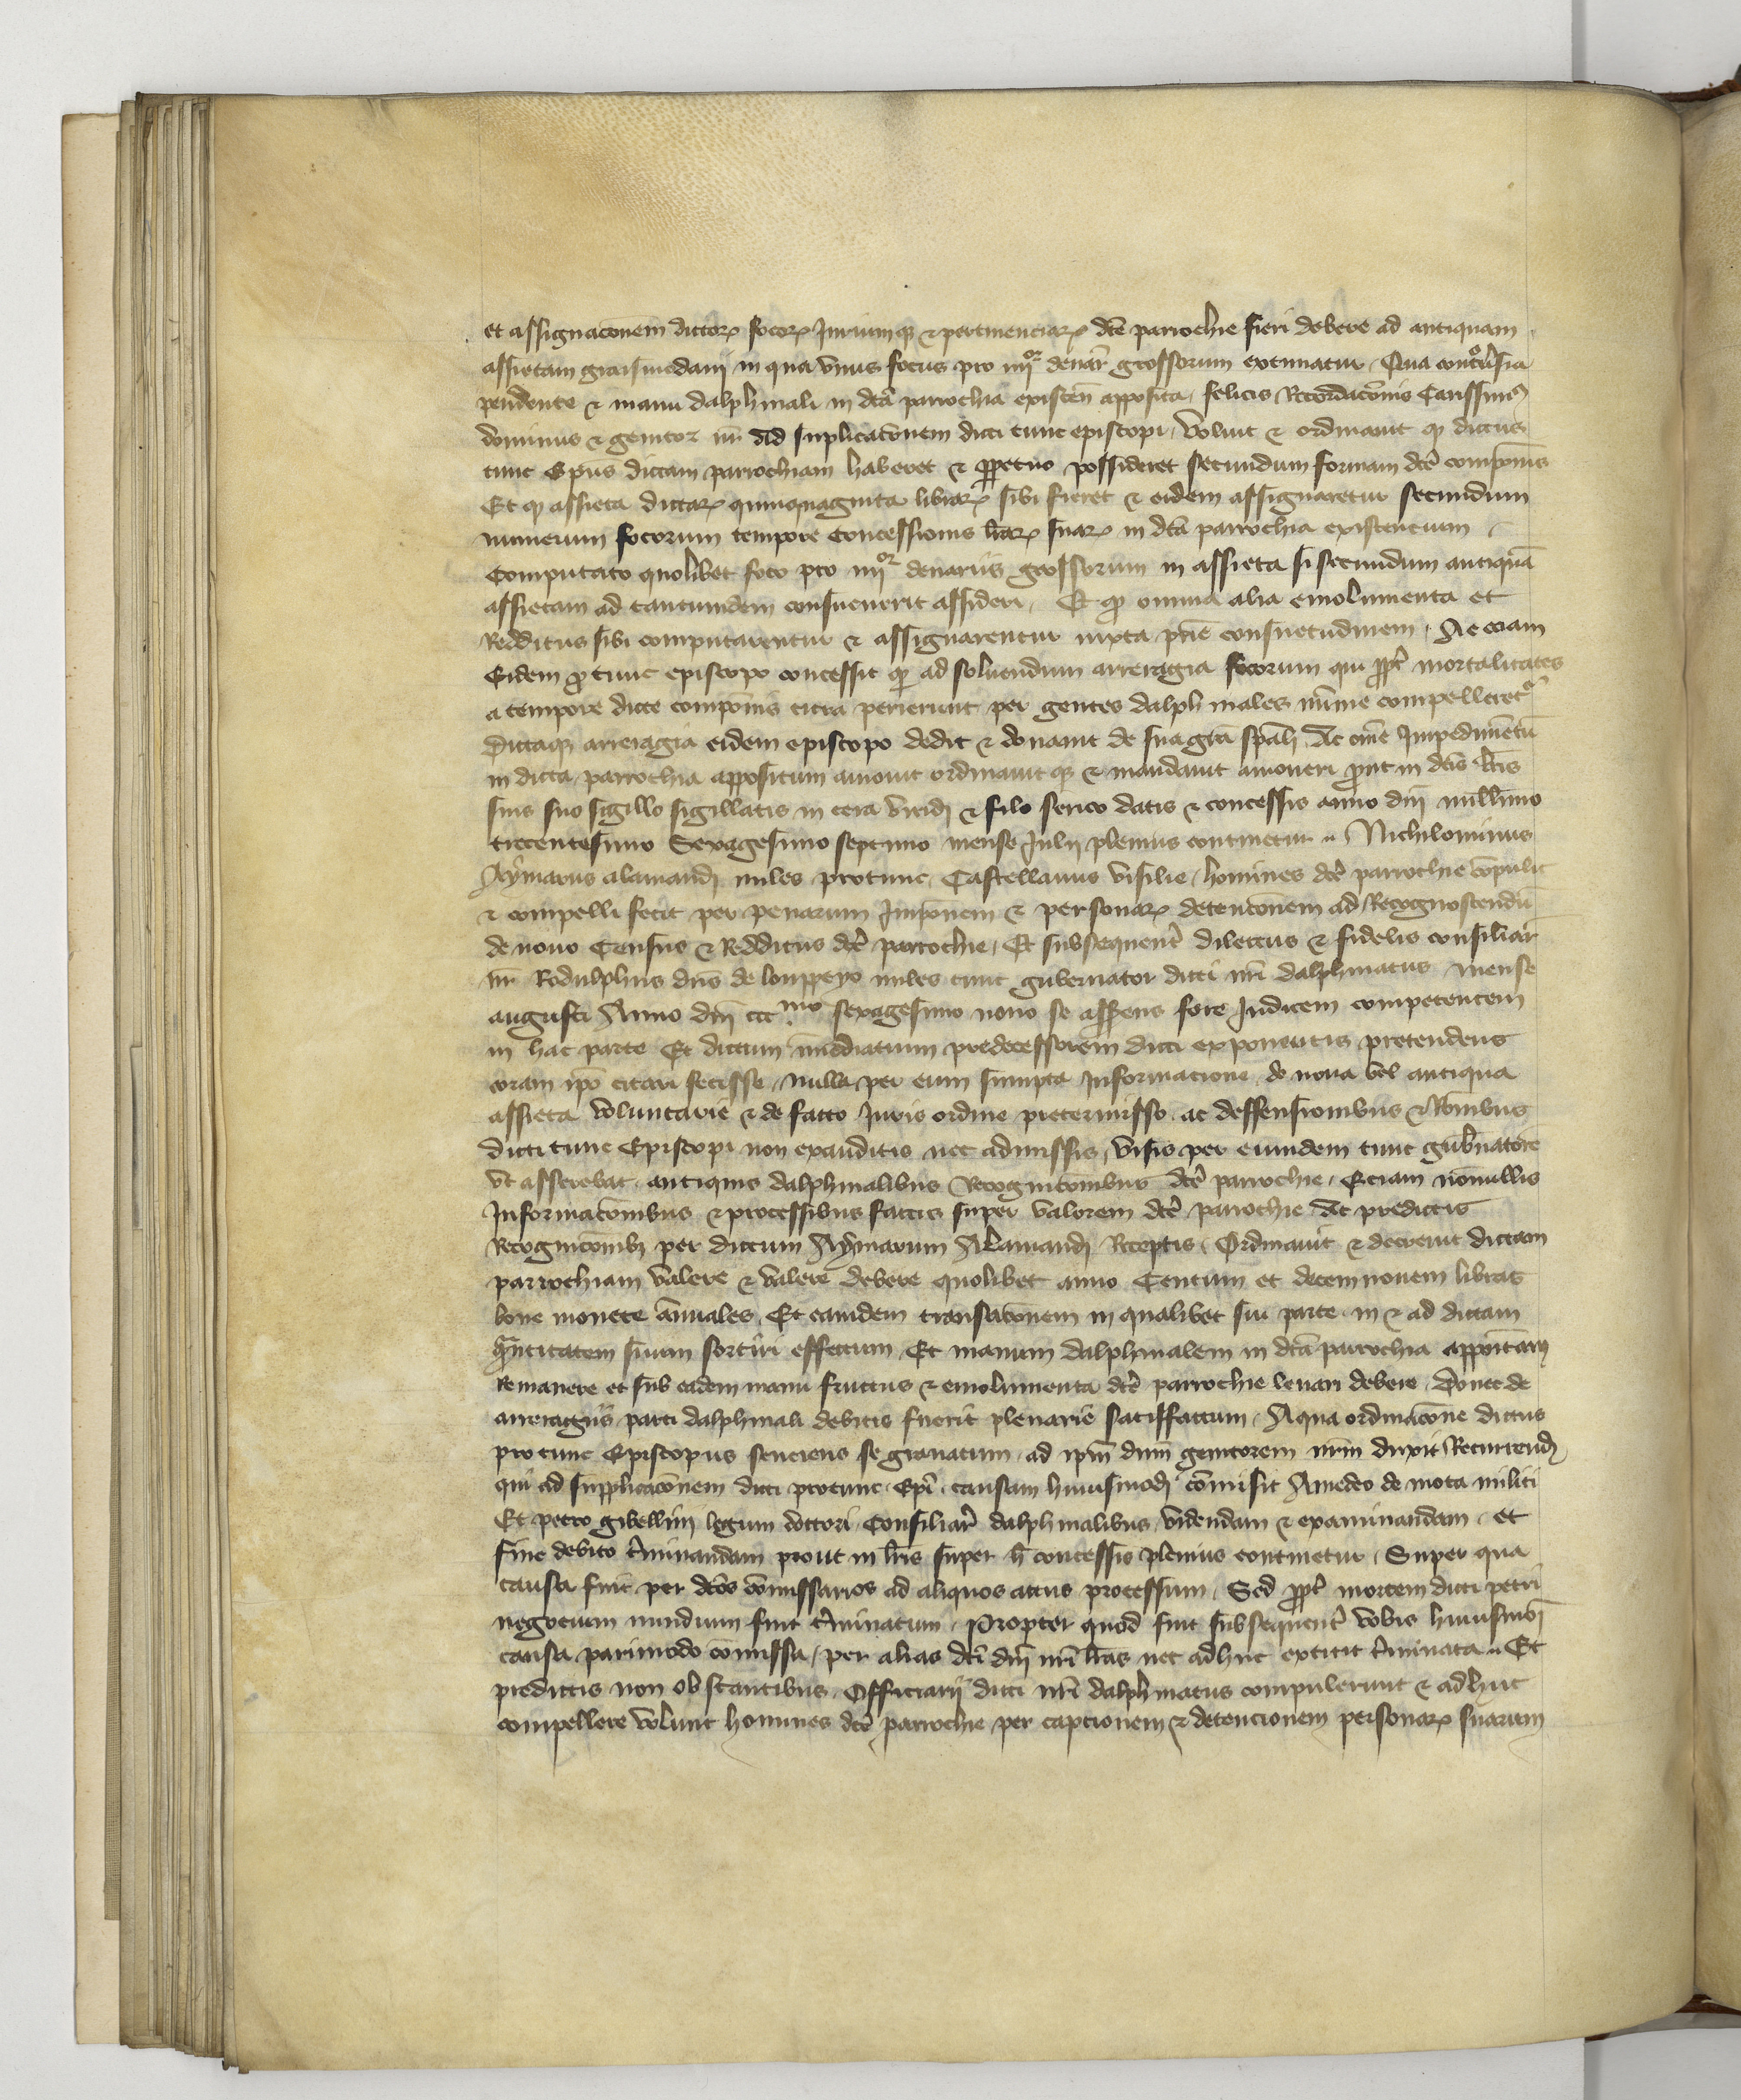 et assignacōnem dictoꝝ focoꝝ Juriumqꝫ ⁊ pertinenciaꝝ dc̄e parrochie fieri debere ad antiquam
assietam graisiuodanj in qua vnus focus pro iiijor denar̄ grossorum extimatur. Qua contrōu̓sia
pendente ⁊ manu dalphinali in dc̄a parrochia existen̄ apposita, felicis Recordacōnis Carissimꝰ
dominus ⁊ genitor nr̄ ad supplicacōnem dicti tunc episcopi, voluit ⁊ ordinauit qꝫ dictus
tunc Ep̄us dictam parrochiam haberet ⁊ ꝑpetuo possideret secundum formam dc̄e compōnis
Et qꝫ assieta dictaꝝ quinquaginta libraꝝ sibi fieret ⁊ eidem assignaretur secundum
numerum focorum tempore Concessionis lr̄aꝝ suaꝝ in dc̄a parrochia existencium
Computato quolibet foco pro iiijor denariis grossorum in assieta si secundum antiquā
assietam ad tantumdem consueuerit assideri, Et qꝫ omnia alia emolumenta et
Redditus sibi computarentur ⁊ assignarentur iuxta pr̄ie consuetudinem, Ac eciam
Eidem ꝓtunc episcopo concessit qꝫ ad soluendum arreragia focorum qui ꝓpt̓ mortalitates
a tempore dicte compōnis citra perierunt per gentes dalphinales mīme compelleretᷣ
Dictaqꝫ arreragia eidem episcopo dedit ⁊ donauit de sua gr̄a sp̄ali, Ac om̄e Impedimētū
in dicta parrochia appositum amouit ordinauitqꝫ ⁊ mandauit amoueri prout in dc̄is lr̄is
suis suo sigillo sigillatis in cera viridj ⁊ filo serico datis ⁊ concessis anno dn̄j millīmo
trecentesimo Sexagesimo septimo mense Julij plenius continetur. Nichilominus
Aymarus alamandj miles protunc Castellanus visilie, homines dc̄e parrochie cōpulit
⁊ compelli fecit per penarum Impōnem ⁊ personaꝝ detencōnem ad Recognoscendū
de nouo Census ⁊ Redditus dc̄e parrochie, Et subsequent̓ dilectus ⁊ fidelis consiliar̄
nr̄ Rodulphus dn̄s de louppeyo miles tunc gubernator dicti nr̄i dalphinatus mense
augusti Anno dn̄j ccc.mo sexagesimo nono se asserens fore Judicem competentem
in hac parte Et dictum īmediatum predecessorem dicti exponentis pretendens
coram ip̄o citari fecisse, nulla per eum sumpta Informacione de noua vel antiqua
assieta voluntarie ⁊ de facto Juris ordine pretermisso. ac deffensionibus ⁊ Rōnibus
dicti tunc Episcopi non exauditis nec admissis, visis per eumdem tunc gub̄natorē
vt asserebat. antiquis dalphinalibus Recognicōnibus dc̄e parrochie, Eciam nōnullis
Informacōnibus ⁊ processibus factis super valorem dc̄e parrochie Ac predictis
Recognicōnibꝫ per dictum Aymarum Alamandj Receptis, Ordinauit ⁊ decreuit dictam
parrochiam valere ⁊ valere debere quolibet anno Centum et decemnouem libras
bone monete annuales, Et eamdem transaccōnem in qualibet sui parte in ⁊ ad dictam
q̄ntitatem suum sortiri effectum, Et manum dalphinalem in dc̄a parrochia appōitam
Remanere et sub eadem manu fructus ⁊ emolumenta dc̄e parrochie leuari debere. donec de
arreragiis parti dalphinali debitis fuerit plenarie satisffactum, A qua ordinacōne dictus
pro tunc Episcopus senciens se grauatum, ad ip̄m dn̄m genitorem nr̄m duxit Recurrendj
qui ad supplicacōnem dicti protunc Ep̄i, causam huiusmodj cōmisit Amedeo de mota militi
Et petro gibellinj legum doctori, Consiliar̄ dalphinalibus, videndam ⁊ examinandam, et
fine debito t̓minandam prout in lr̄is super h̄ concessis plenius continetur, Super qua
causa fuit per dc̄os cōmissarios ad aliquos actus processum, Sed ꝓpt̓ mortem dicti petri
negocium nundum fuit t̓minatum, Propter quod fuit subsequent̓ vobis huiusmōi
causa parimodo cōmissa, per alias dc̄i dn̄j nr̄i lr̄as nec adhuc extitit t̓minata. Et
predictis non obstantibus, Officiarij dicti nr̄i dalphinatus compulerunt ⁊ adhuc
compellere volunt homines dc̄e parrochie per capcionem ⁊ detencionem personaꝝ suarum